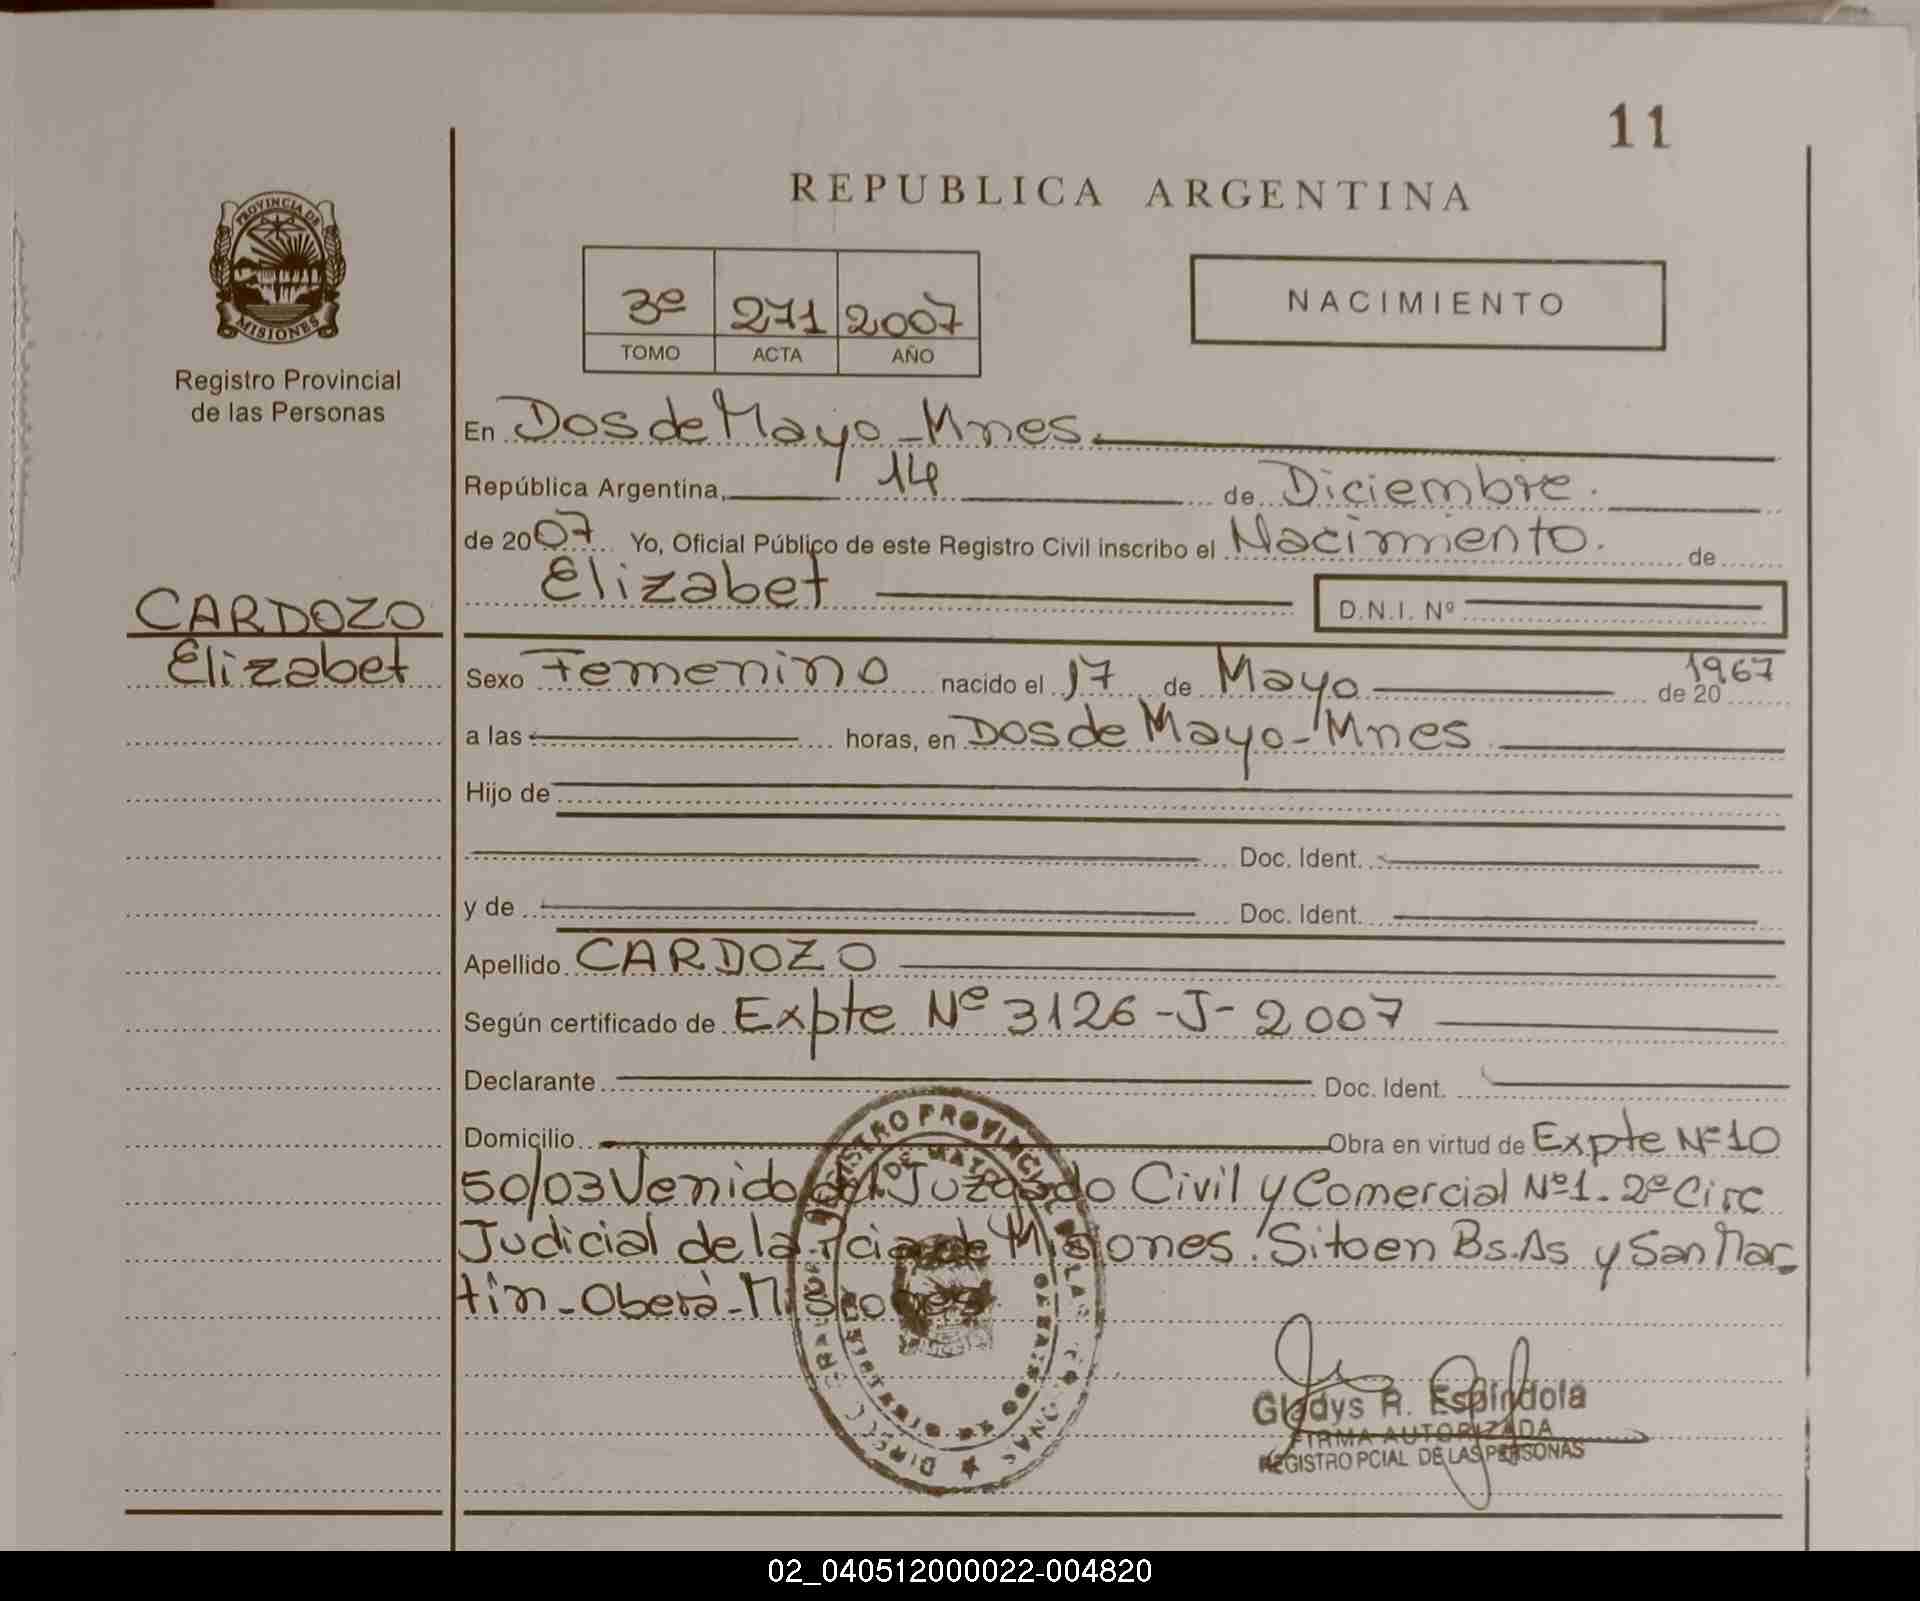 11
REPUBLICA ARGENTINA
PROVINCIA DE
MISIONES
Registro Provincial
de las Personas
3º 271 2007
TOMO ACTA AÑO
NACIMIENTO
En Dos de Mayo - Mnes.
República Argentina, 14 de Diciembre.
de 2007 Yo, Oficial Público de este Registro Civil inscribo el Nacimiento. de
Elizabet D.N.I. Nº
CARDOZO
Elizabet
Sexo Femenino nacido el 17 de Mayo de 20 1967
a las horas, en Dos de Mayo - Mnes
Hijo de
Doc. Ident.
y de Doc. Ident.
Apellido CARDOZO
Según certificado de Expte Nº 3126-J-2007
Declarante Doc. Ident.
Domicilio Obra en virtud de Expte Nº 10
50/03 Venido del Juzgado Civil y Comercial Nº1. 2º Circ
Judicial de la Pcia de Misiones. Sito en Bs.As y San Mar-
tín - Oberá - Misiones
Gladys R. Espíndola
FIRMA AUTORIZADA
REGISTRO PCIAL DE LAS PERSONAS
02_040512000022-004820